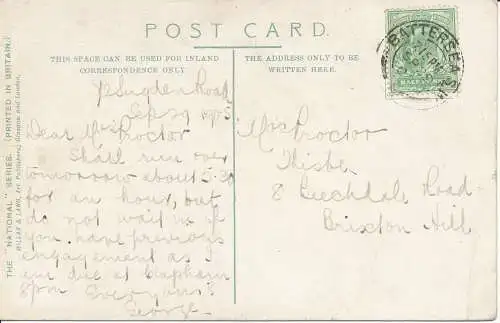 POST CARD.
THIS SPACE CAN BE USED FOR INLAND
CORRESPONDENCE ONLY
THE ADDRESS ONLY TO BE
WRITTEN HERE.
BATTERSEA
Sugden Road
Dear Miss Proctor
Shall run over
tomorrow about 5.30
for an hour, but
do not wait in if
you have previous
engagement as I
am due at Clapham
8pm
George
Miss Proctor
8 Beechdale Road
Brixton Hill
THE "NATIONAL" SERIES. (PRINTED IN BRITAIN.)
MILLAR & LANG, Art Publishers, Glasgow and London.